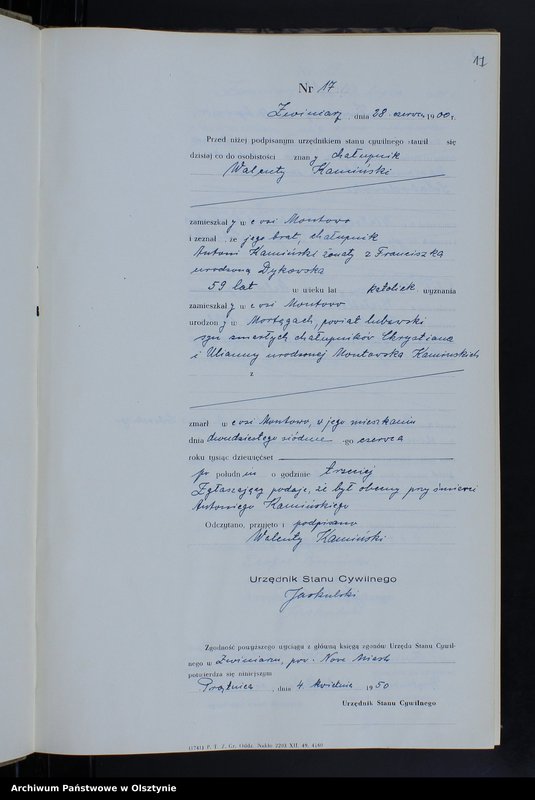 17
Nr 17.
Zwiniarz, dnia 28 czerwca 1900 r.
Przed niżej podpisanym urzędnikiem stanu cywilnego stawił się
dzisiaj co do osobistości znany chałupnik
Walenty Kamiński
zamieszkały we wsi Montowo
i zeznał, że jego brat, chałupnik
Antoni Kamiński żonaty z Franciszka
urodzoną Dykowska
59 lat w wieku lat katolick wyznania
zamieszkały we wsi Montowo
urodzony w Mortęgach, powiat lubawski
syn zmarłych chałupników Chrystiana
i Ulianny urodzonej Montowska Kamińskich
z
zmarł we wsi Montowo, w jego mieszkaniu
dnia dwudziestego siódme -go czerwca
roku tysiąc dziewięćset
po południu o godzinie trzeciej
Zgłaszający podaje, że był obecny przy śmierci
Antoniego Kamińskiego
Odczytano, przyjęto i podpisano
Walenty Kamiński
Urzędnik Stanu Cywilnego
Jaskulski
Zgodność powyższego wyciągu z główną księgą zgonów Urzędu Stanu Cywil-
nego w Zwiniarzu, pow. Nowe Miasto
potwierdza się niniejszym
Prątnica, dnia 4 kwietnia 1950
Urzędnik Stanu Cywilnego
(1741) P. T. Z. Gr. Oddz. Nakło 2203 XII. 49.
Archiwum Państwowe w Olsztynie